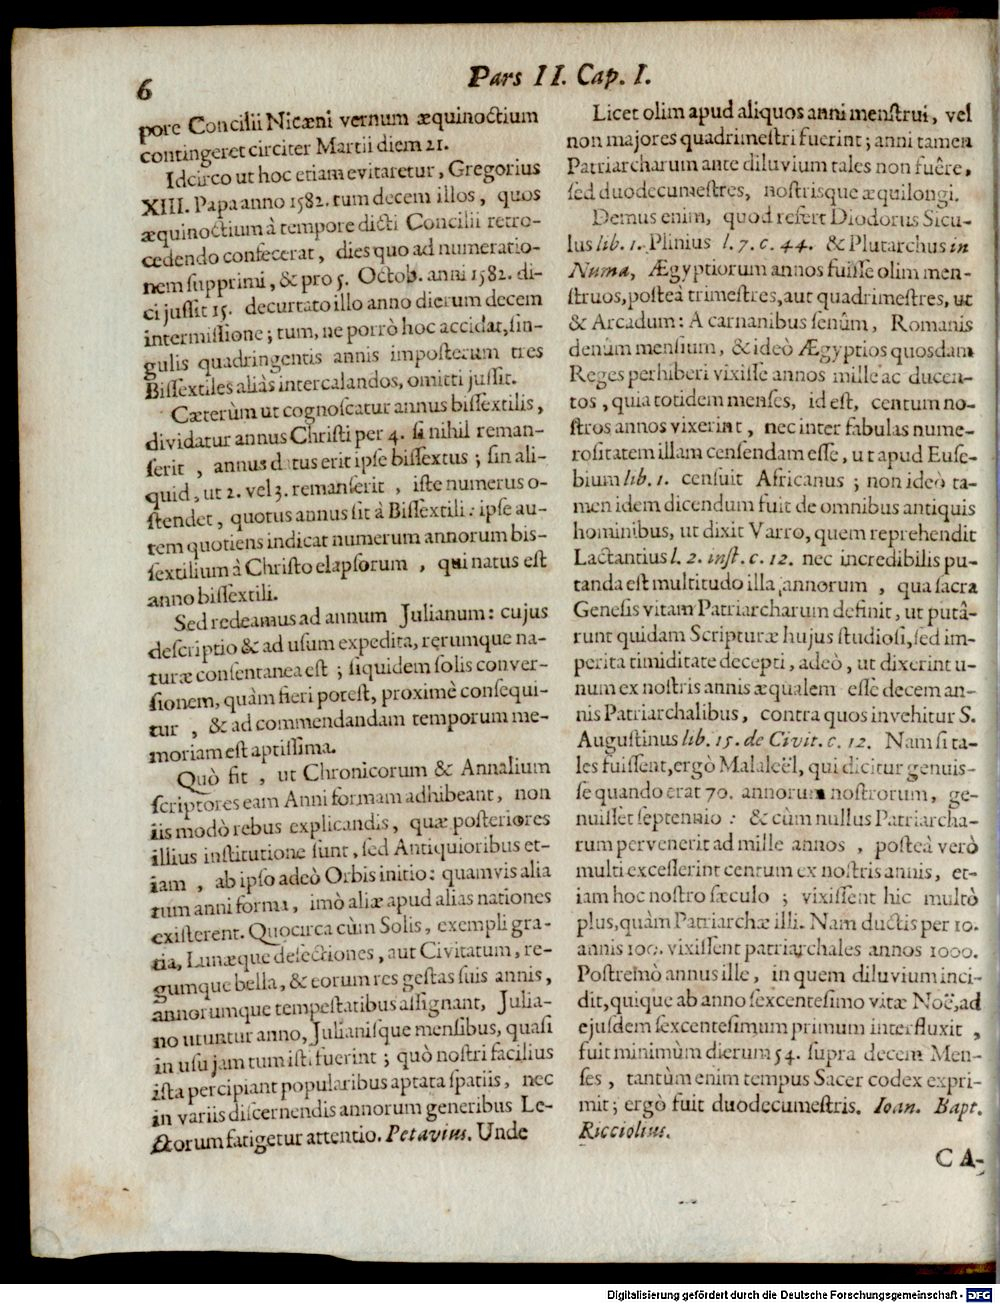 6
Pars II. Cap. I.
pore Concilii Nicæni vernum æquinoctium
contingeret circiter Martii diem 21.
Idcirco ut hoc etiam evitaretur, Gregorius
XIII. Papa anno 1582. tum decem illos, quos
æquinoctium à tempore dicti Concilii retro-
cedendo confecerat, dies quo ad numeratio-
nem supprimi, & pro 5. Octob. anni 1582. di-
ci jussit 15. decurtato illo anno dierum decem
intermissione; tum, ne porrò hoc accidat, sin-
gulis quadringentis annis imposterum tres
Bissextiles aliàs intercalandos, omitti jussit.
Cæterùm ut cognoscatur annus bissextilis,
dividatur annus Christi per 4. si nihil reman-
serit, annus datus erit ipse bissextus; sin ali-
quid, ut 2. vel 3. remanserit, iste numerus o-
stendet, quotus annus sit à Bissextili: ipse au-
tem quotiens indicat numerum annorum bis-
sextilium à Christo elapsorum, qui natus est
anno bissextili.
Sed redeamus ad annum Julianum: cujus
descriptio & ad usum expedita, rerumque na-
turæ consentanea est; siquidem solis conver-
sionem, quàm fieri potest, proximè consequi-
tur, & ad commendandam temporum me-
moriam est aptissima.
Quò fit, ut Chronicorum & Annalium
scriptores eam Anni formam adhibeant, non
iis modò rebus explicandis, quæ posteriores
illius institutione sunt, sed Antiquioribus et-
iam, ab ipso adeò Orbis initio: quamvis alia
tum anni forma, imò aliæ apud alias nationes
existerent. Quocirca cùm Solis, exempli gra-
tia, Lunæque defectiones, aut Civitatum, re-
gumque bella, & eorum res gestas suis annis,
annorumque tempestatibus assignant, Julia-
no utuntur anno, Julianisque mensibus, quasi
in usu jam tum isti fuerint; quò nostri facilius
ista percipiant popularibus aptata spatiis, nec
in variis discernendis annorum generibus Le-
ctorum fatigetur attentio. Petavius. Unde
Licet olim apud aliquos anni menstrui, vel
non majores quadrimestri fuerint; anni tamen
Patriarcharum ante diluvium tales non fuêre,
sed duodecumestres, nostrisque æquilongi.
Demus enim, quod refert Diodorus Sicu-
lus lib. 1. Plinius l. 7. c. 44. & Plutarchus in
Numa, Ægyptiorum annos fuisse olim men-
struos, posteà trimestres, aut quadrimestres, ut
& Arcadum: A carnanibus senûm, Romanis
denûm mensium, & ideò Ægyptios quosdam
Reges perhiberi vixisse annos mille ac ducen-
tos, quia totidem menses, id est, centum no-
stros annos vixerint, nec inter fabulas nume-
rositatem illam censendam esse, ut apud Euse-
bium lib. 1. censuit Africanus; non ideò ta-
men idem dicendum fuit de omnibus antiquis
hominibus, ut dixit Varro, quem reprehendit
Lactantius l. 2. inst. c. 12. nec incredibilis pu-
tanda est multitudo illa annorum, qua sacra
Genesis vitam Patriarcharum definit, ut putâ-
runt quidam Scripturæ hujus studiosi, sed im-
perita timiditate decepti, adeò, ut dixerint u-
num ex nostris annis æqualem esse decem an-
nis Patriarchalibus, contra quos invehitur S.
Augustinus lib. 15. de Civit. c. 12. Nam si ta-
les fuissent, ergò Malaleël, qui dicitur genuis-
se quando erat 70. annorum nostrorum, ge-
nuisset septennio: & cùm nullus Patriarcha-
rum pervenerit ad mille annos, posteà verò
multi excesserint centum ex nostris annis, et-
iam hoc nostro sæculo; vixissent hic multò
plus, quàm Patriarchæ illi. Nam ductis per 10.
annis 100. vixissent patriarchales annos 1000.
Postremò annus ille, in quem diluvium inci-
dit, quique ab anno sexcentesimo vitæ Noë, ad
ejusdem sexcentesimum primum interfluxit,
fuit minimùm dierum 54. supra decem Men-
ses, tantùm enim tempus Sacer codex expri-
mit; ergò fuit duodecumestris. Ioan. Bapt.
Ricciolius.
CA-
Digitalisierung gefördert durch die Deutsche Forschungsgemeinschaft - DFG